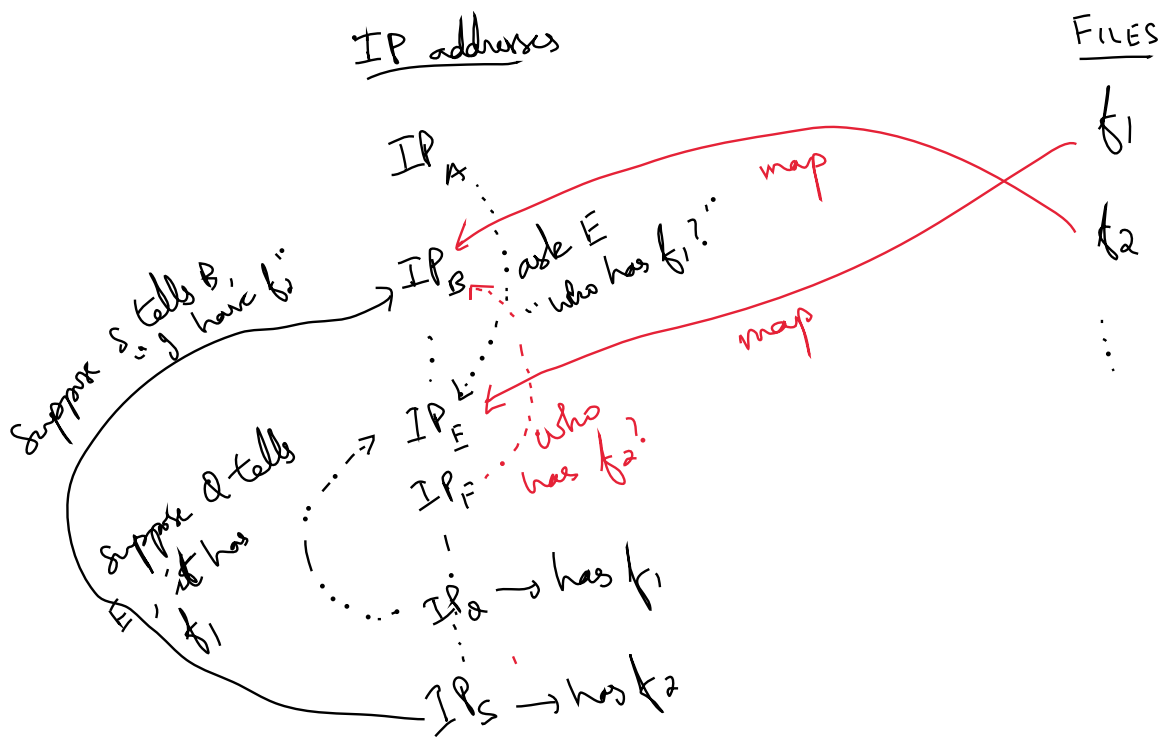 IP addresses
FILES
IP_A
f1
map
f2
IP_B
ask E
"who has f1?"
Suppose S tells B,
"I have f2"
map
IP_E
who
has f2?
IP_F
Suppose Q tells
E, it has
f1
IP_Q → has f1
IP_S → has f2